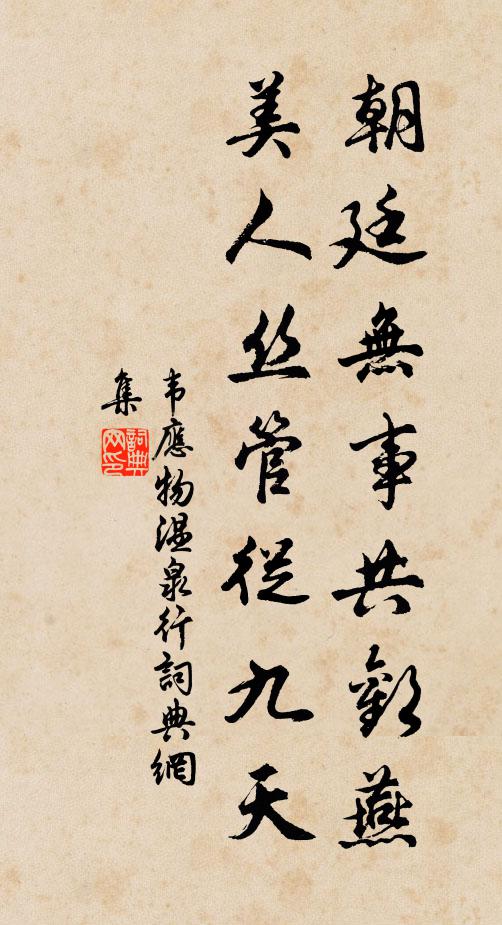 朝廷無事共歡燕
美人丝管從九天
韦應物温泉行詞典網
集
詞典
网印